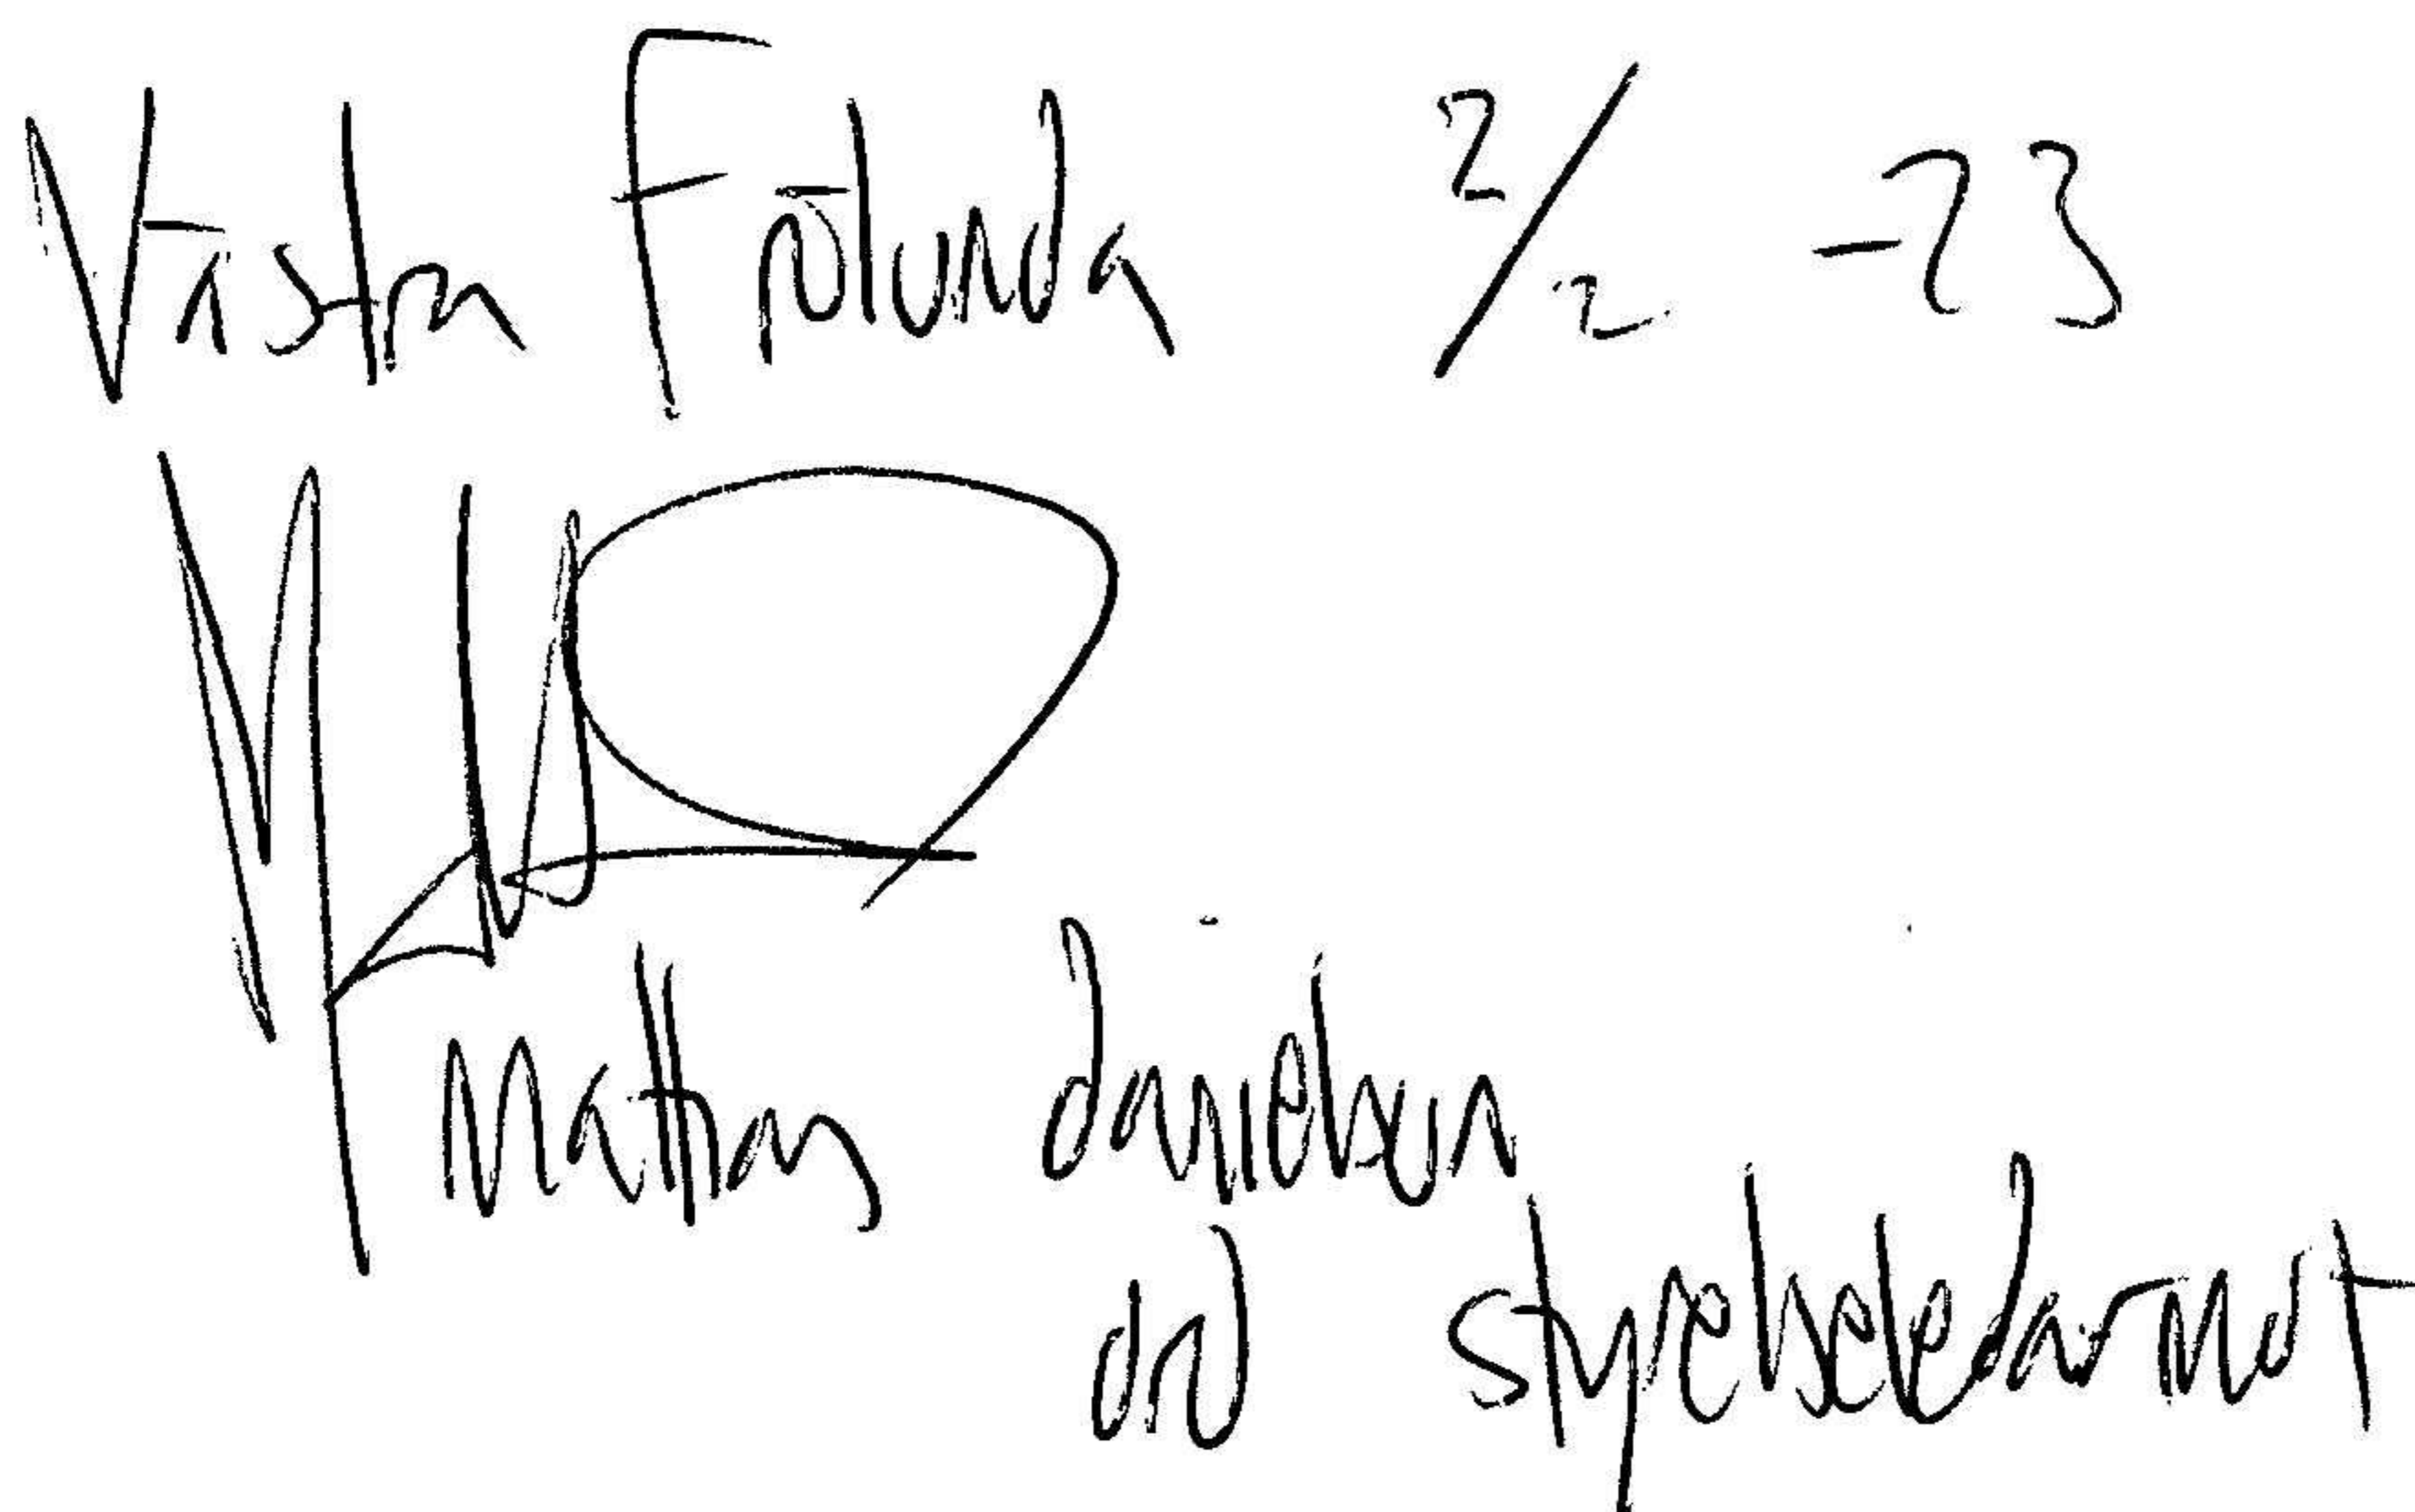 Västra Frölunda 2/2 -23
Mattias danielsson
ord styrelseledarmot